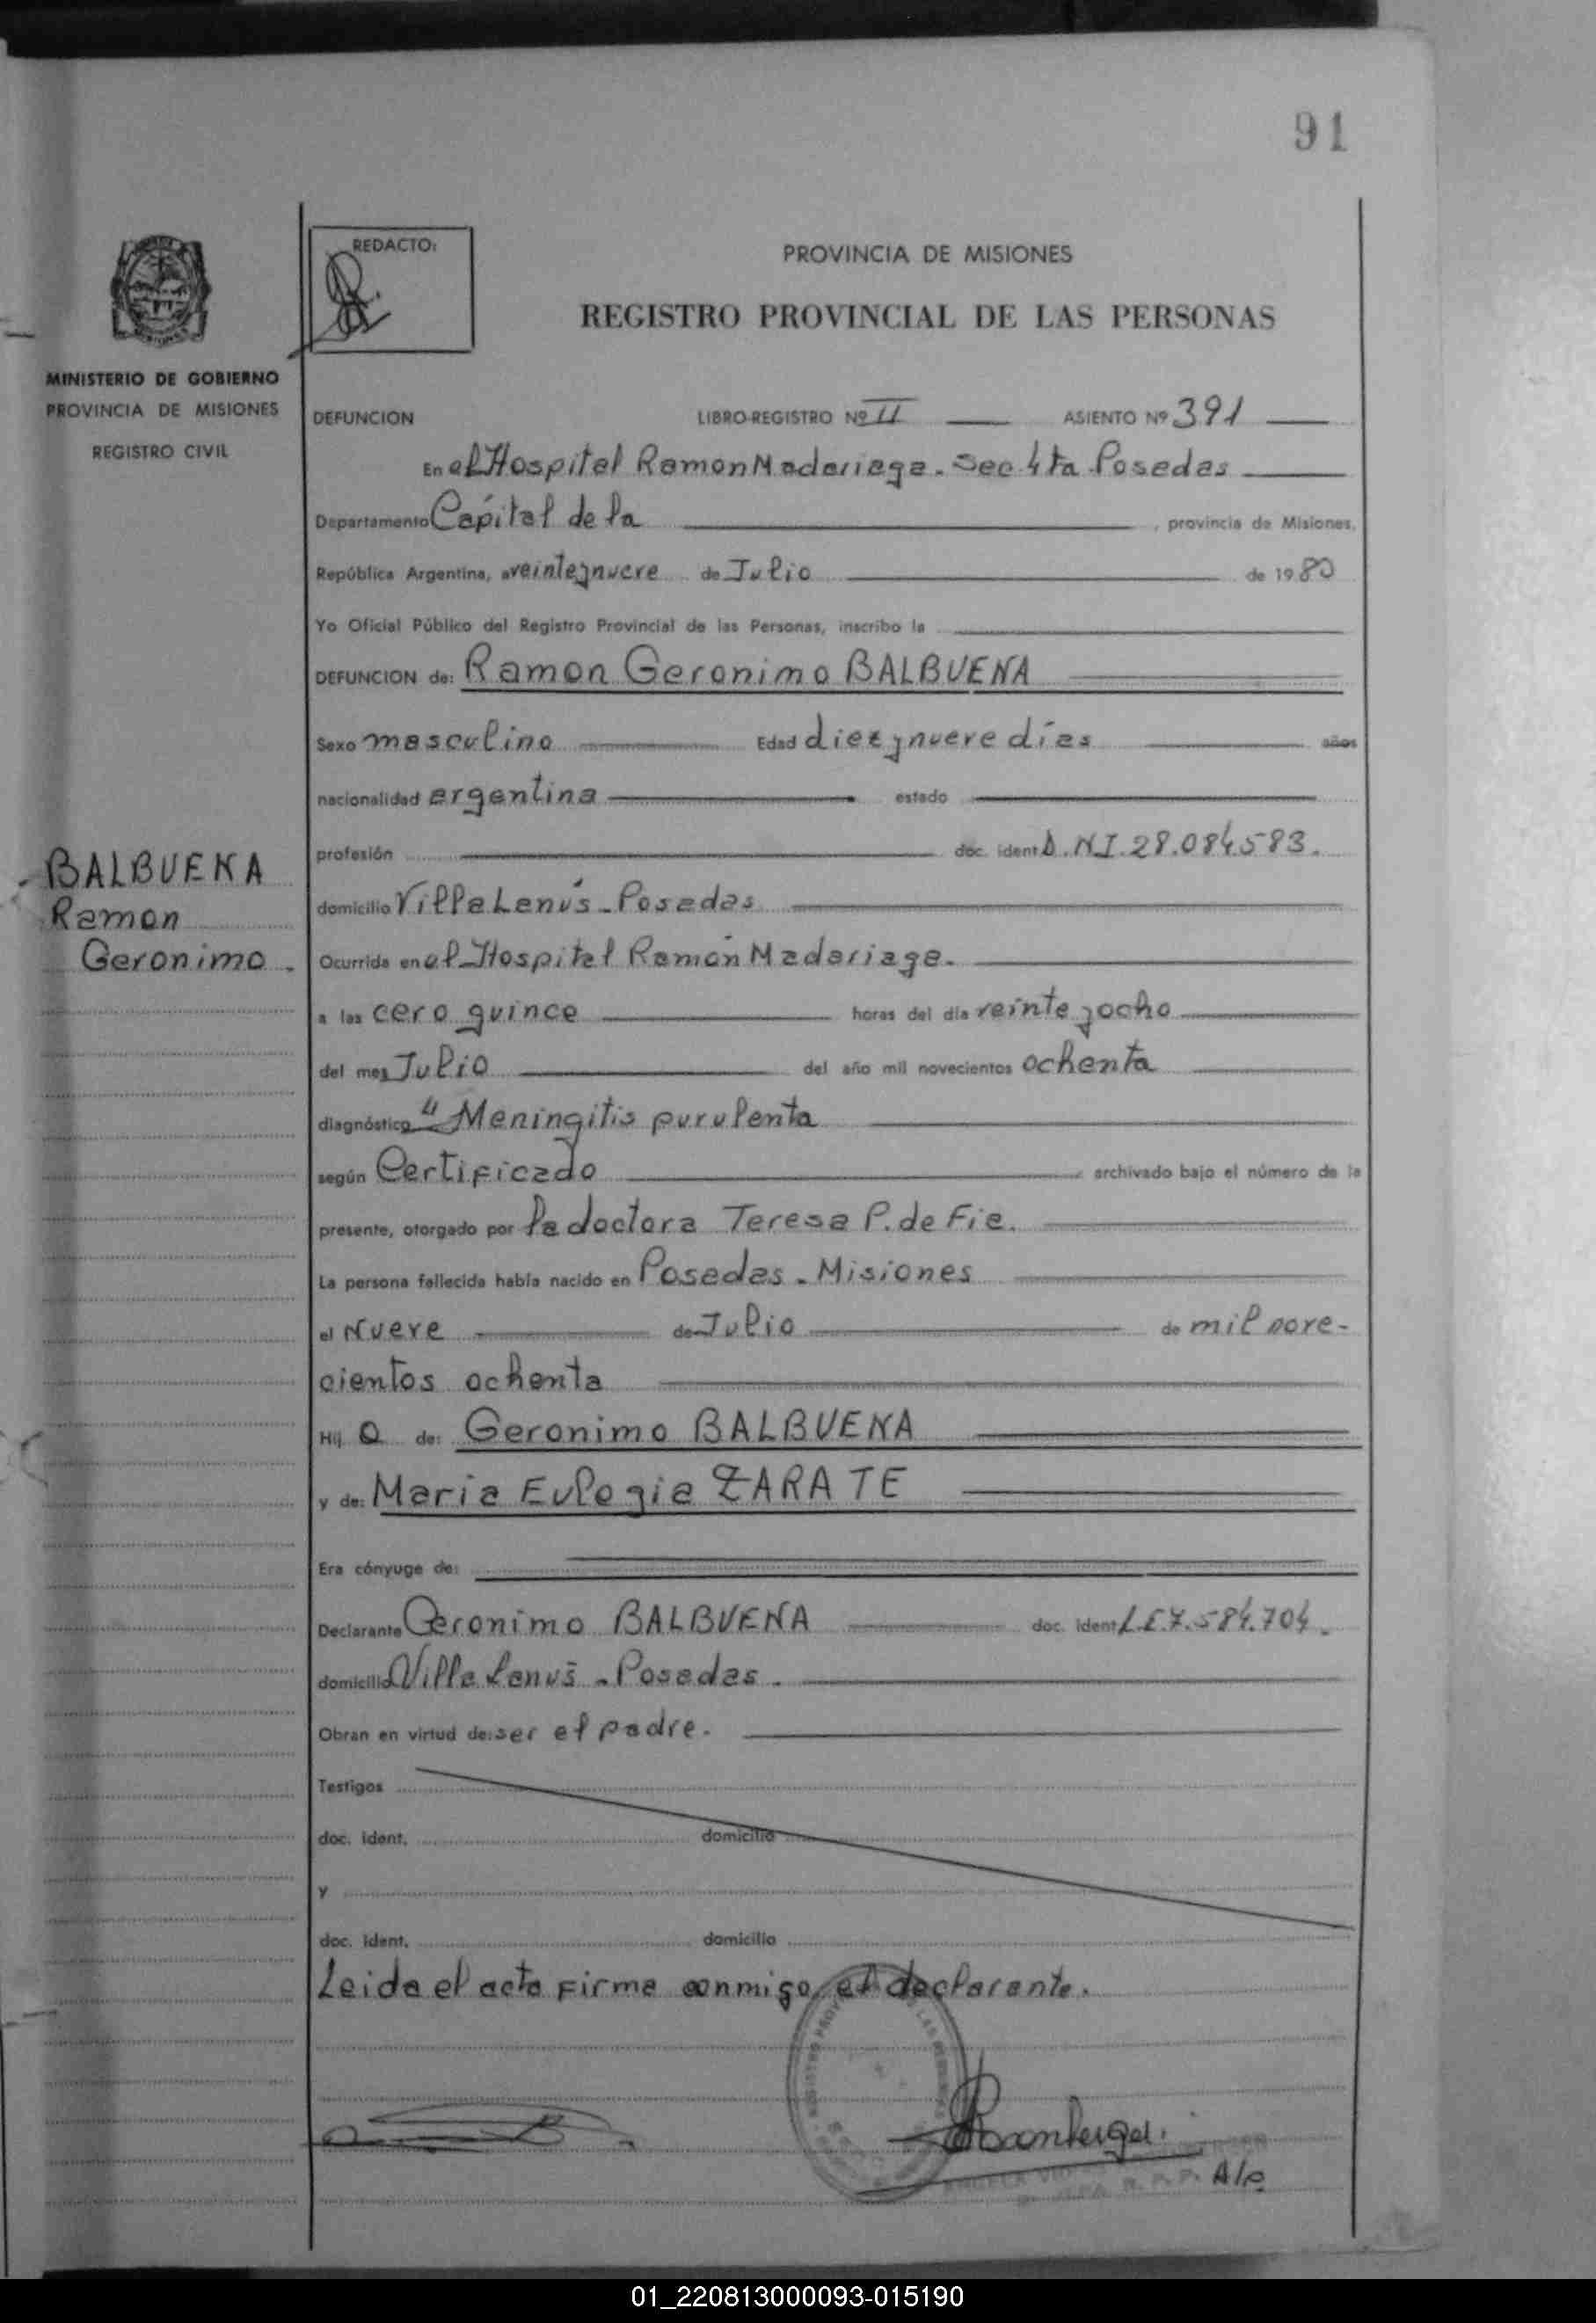 91
REDACTO:
PROVINCIA DE MISIONES
REGISTRO PROVINCIAL DE LAS PERSONAS
MINISTERIO DE GOBIERNO
PROVINCIA DE MISIONES
REGISTRO CIVIL
DEFUNCION LIBRO-REGISTRO Nº II ASIENTO Nº 391
En el Hospital Ramon Madariaga. Sec 4ta Posadas
Departamento Capital de la , provincia de Misiones,
República Argentina, a veinteynueve de Julio de 1980
Yo Oficial Público del Registro Provincial de las Personas, inscribo la
DEFUNCION de: Ramon Geronimo BALBUENA
Sexo masculino Edad diez y nueve días años
nacionalidad argentina estado
profesión doc. ident D.N.I. 28.084.583.
BALBUENA
Ramon
Geronimo.
domicilio Villa Lanús - Posadas
Ocurrida en el Hospital Ramón Madariaga.
a las cero quince horas del día veinte y ocho
del mes Julio del año mil novecientos ochenta
diagnóstico " Meningitis purulenta
según Certificado archivado bajo el número de la
presente, otorgado por la doctora Teresa P. de Fie.
La persona fallecida había nacido en Posadas. Misiones
el Nueve de Julio de mil nove-
cientos ochenta
Hij o de: Geronimo BALBUENA
y de: Maria Eulogia ZARATE
Era cónyuge de:
Declarante Geronimo BALBUENA doc. ident L.E 7.584.704.
domicilio Villa Lanús - Posadas.
Obran en virtud de: ser el padre.
Testigos
doc. ident. domicilio
y
doc. ident. domicilio
Leida el acta firma conmigo, el declarante.
01_220813000093-015190